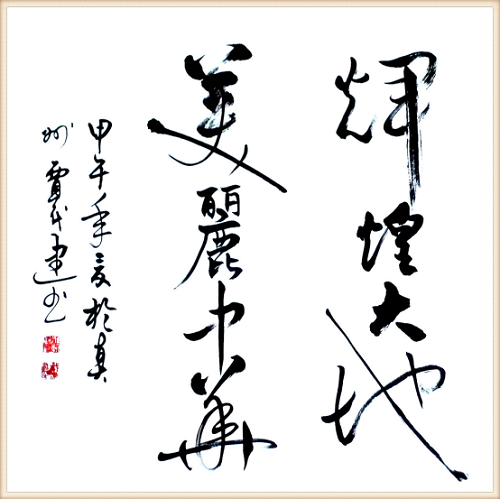 輝煌大地
美麗中華
甲午年夏於真
州賈代建书